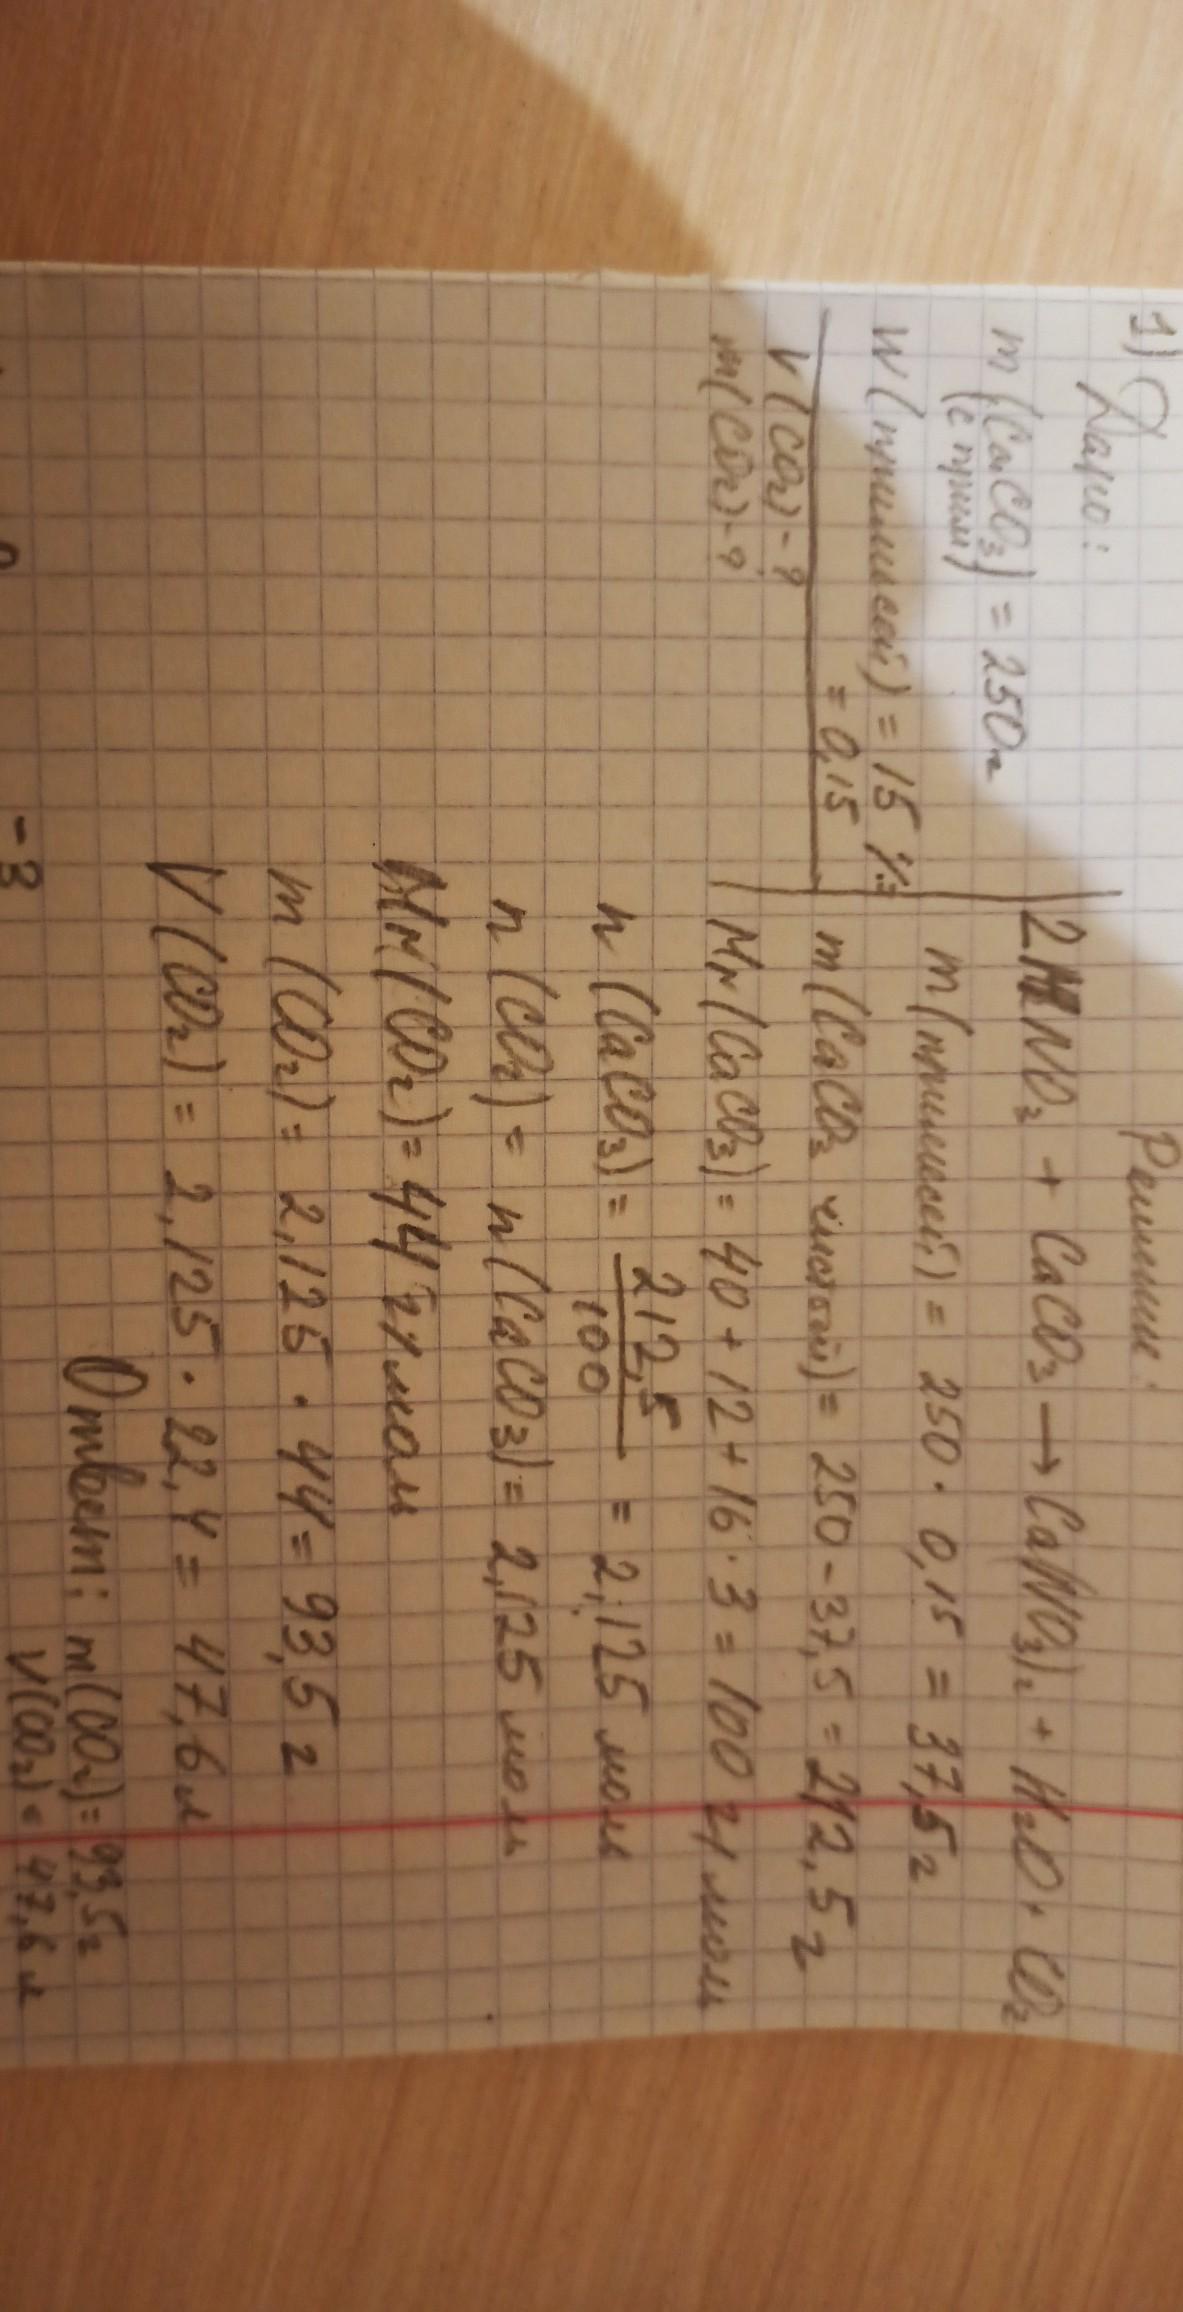 1) Дано:
m (CaCO₃) = 250г
(с прим)
W (примесей) = 15 % =
= 0,15
V (CO₂) - ?
m (CO₂) - ?
Решение:
2HNO₃ + CaCO₃ → Ca(NO₃)₂ + H₂O + CO₂
m (примесей) = 250 · 0,15 = 37,5 г
m (CaCO₃ чистый) = 250 - 37,5 = 212,5 г
Mr (CaCO₃) = 40 + 12 + 16 · 3 = 100 г/моль
n (CaCO₃) = 212,5 / 100 = 2,125 моль
n (CO₂) = n (CaCO₃) = 2,125 моль
Mr (CO₂) = 44 г/моль
m (CO₂) = 2,125 · 44 = 93,5 г
V (CO₂) = 2,125 · 22,4 = 47,6 л
Ответ: m (CO₂) = 93,5 г
V (CO₂) = 47,6 л
-3